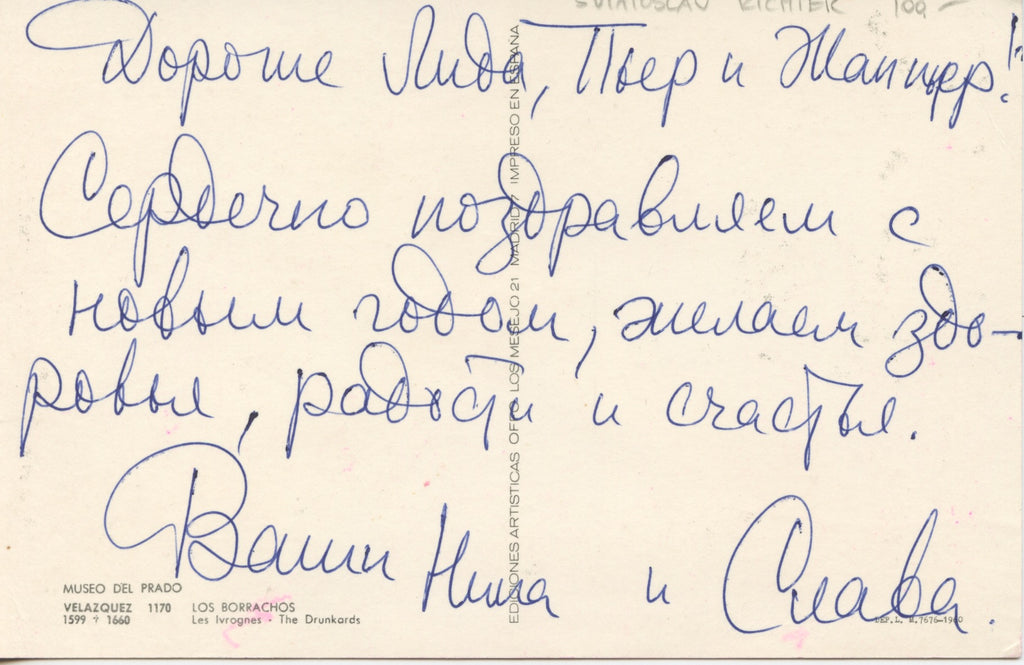 SVIATOSLAV RICHTER 100 -
Дорогие Лида, Пьер и
Сердечно поздравляем с
новым годом, желаем здо-
ровья, радости и счастья.
Ваши Нина и Слава.
EDICIONES ARTISTICAS OFFO LOS MESEJO 21 MADRID-7 IMPRESO EN ESPAÑA
MUSEO DEL PRADO
VELAZQUEZ 1170 LOS BORRACHOS
1599 + 1660 Les Ivrognes - The Drunkards
DEP. L. M. 7676-1960